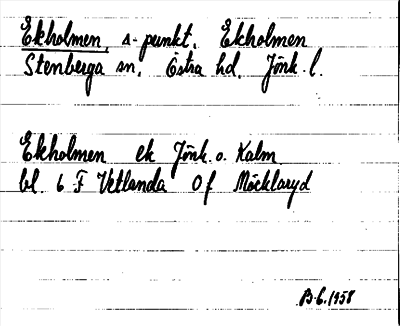 Ekholmen, s-punkt. Ekholmen
Stenberga sn, Östra hd, Jönk. l.
Ekholmen ek Jönk. o. Kalm.
bl. 6 F Vetlanda Of Möcklaryd
B-6.1958